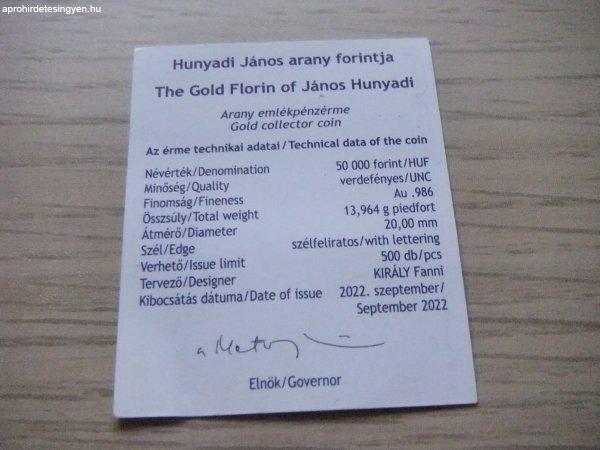 aprohirdetesingyen.hu
Hunyadi János arany forintja
The Gold Florin of János Hunyadi
Arany emlékpénzérme
Gold collector coin
Az érme technikai adatai/Technical data of the coin
Névérték/Denomination 50 000 forint/HUF
Minőség/Quality verdefényes/UNC
Finomság/Fineness Au .986
Összsúly/Total weight 13,964 g piedfort
Átmérő/Diameter 20,00 mm
Szél/Edge szélfeliratos/with lettering
Verhető/Issue limit 500 db/pcs
Tervező/Designer KIRÁLY Fanni
Kibocsátás dátuma/Date of issue 2022. szeptember/
September 2022
Elnök/Governor